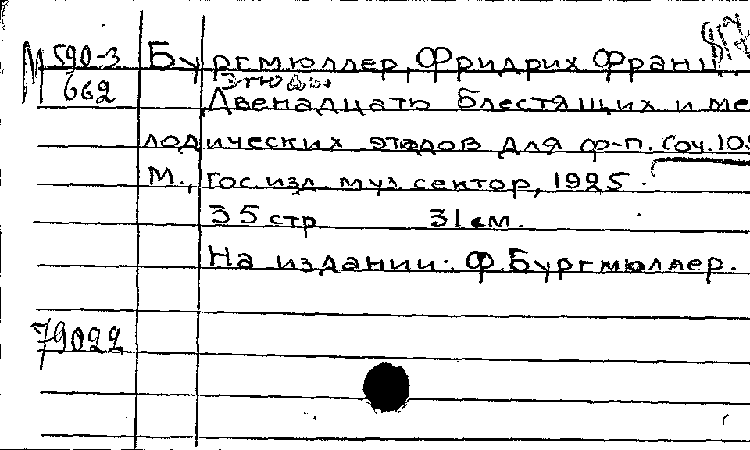 М 590-3 Бургмюллер, Фридрих Франц.
662 Этюды
Двенадцать блестящих и ме
лодических этюдов для ф-п. Соч. 105
М., Гос. изд. муз. сектор, 1925.
35 стр 31 см.
На издании: Ф. Бургмюллер.
79022